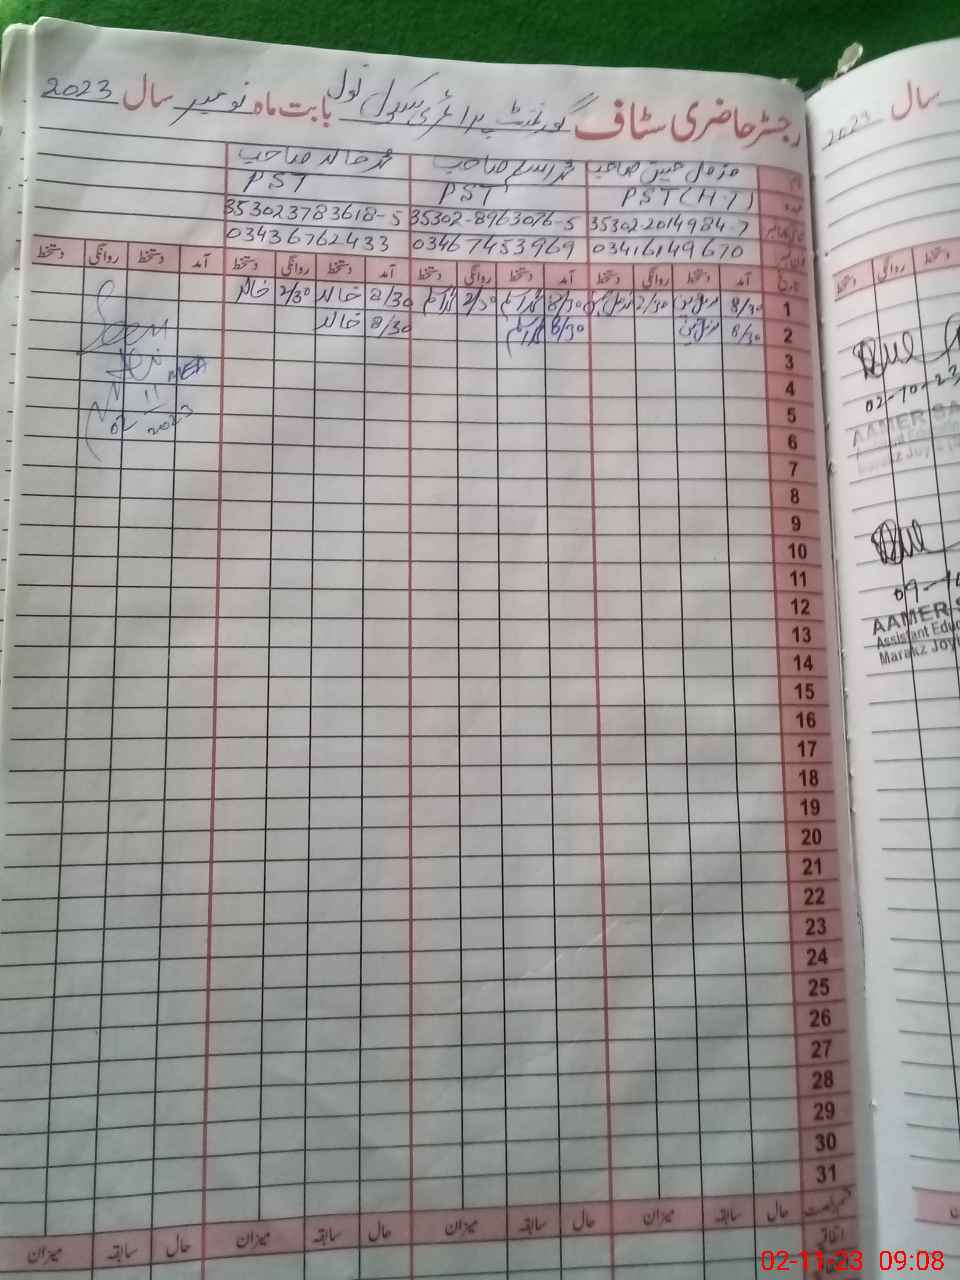 رجسٹر حاضری سٹاف گورنمنٹ پرائمری سکول نول بابت ماہ نومبر سال 2023
نام مزمل حسین صاحب محمد اسلم صاحب محمد خالد صاحب
عہدہ PST (H.T) PST PST
353022014984-7 35302-8963076-5 353023783618-5
03416149670 03467453969 03436762433
تاریخ آمد دستخط روانگی دستخط آمد دستخط روانگی دستخط آمد دستخط روانگی دستخط آمد دستخط روانگی دستخط
1 8/30 2/30 8/30 2/30 8/30 خالد 2/30 خالد
2 8/30 8/30 8/30 خالد
3
4
5
6
7
8
9
10
11
12
13
14
15
16
17
18
19
20
21
22
23
24
25
26
27
28
29
30
31
Seen
MEA
02/11
2023
حال سابقہ میزان حال سابقہ میزان حال سابقہ میزان حال سابقہ میزان
اتفاقی
سال 2023
دستخط روانگی دستخط
02-10-23
AAMER SA
Marakz Joy
09-10
AAMER S
Assistant Educ
Marakz Joy
02-11-23 09:08